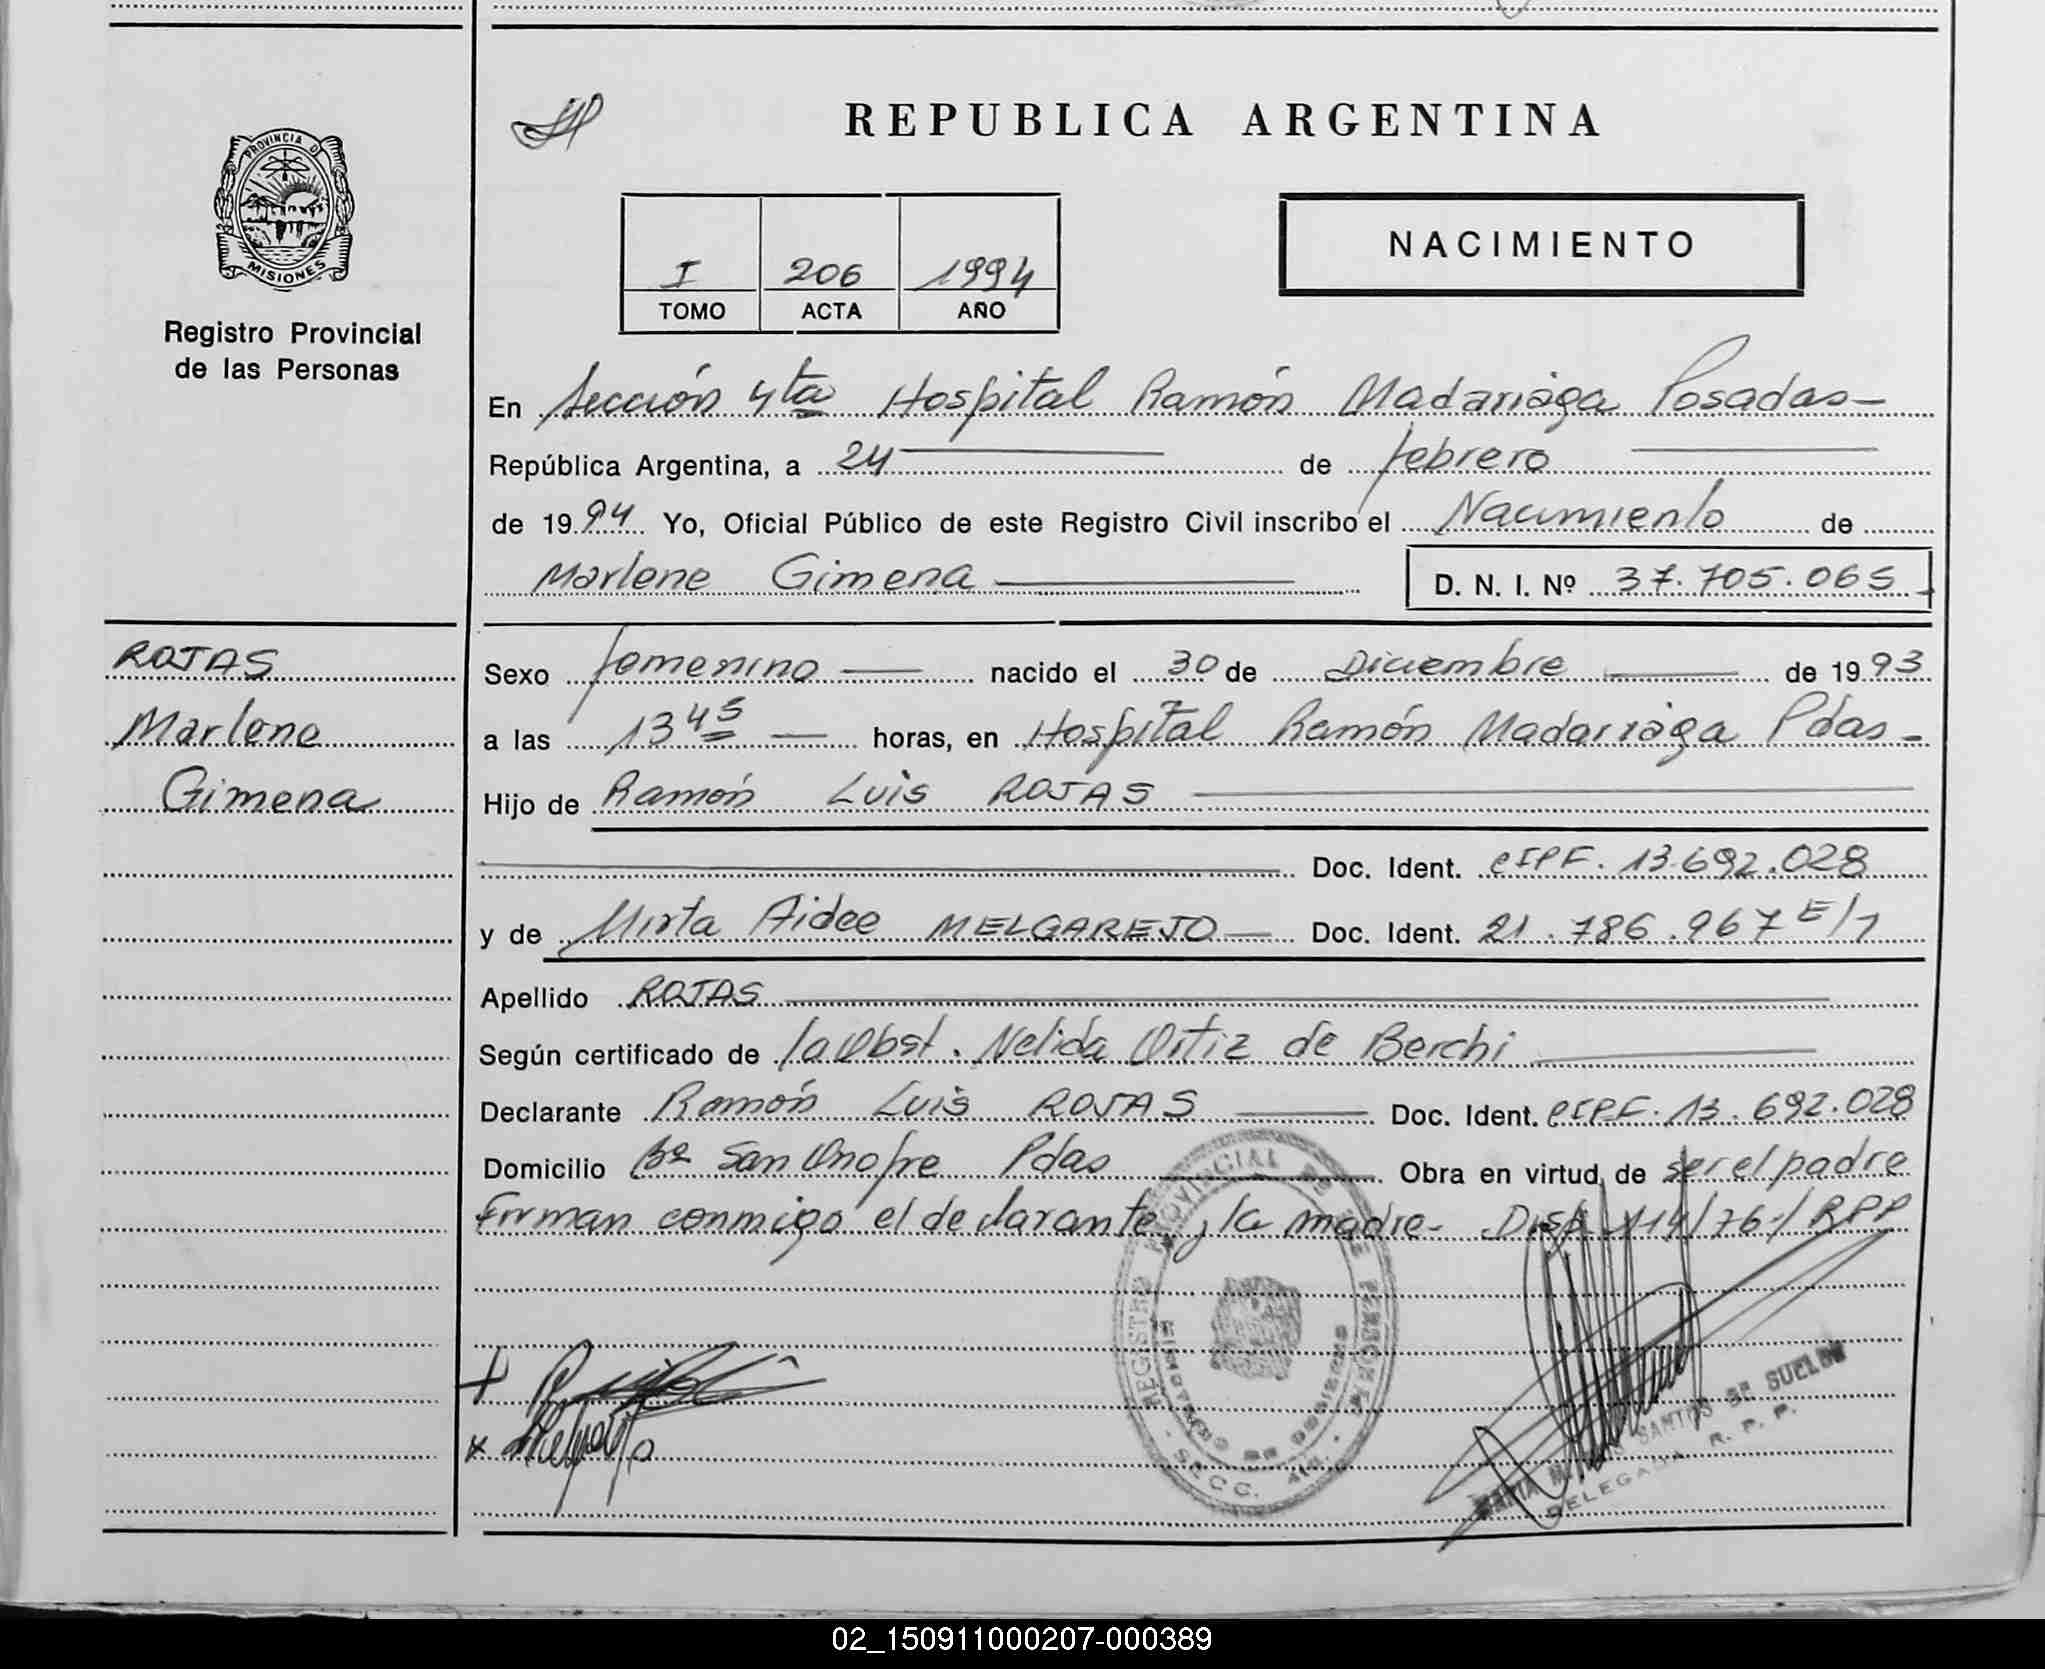 REPUBLICA ARGENTINA
PROVINCIA DE
MISIONES
Registro Provincial
de las Personas
I 206 1994
TOMO ACTA AÑO
NACIMIENTO
En Sección 4ta Hospital Ramón Madariaga Posadas
República Argentina, a 24 de febrero
de 1994 Yo, Oficial Público de este Registro Civil inscribo el Nacimiento de
Marlene Gimena D. N. I. Nº 37.705.065
ROJAS
Marlene
Gimena
Sexo femenino nacido el 30 de Diciembre de 1993
a las 13 45 horas, en Hospital Ramón Madariaga Pdas
Hijo de Ramón Luis ROJAS
Doc. Ident. CIPF. 13.692.028
y de Mirta Aidee MELGAREJO Doc. Ident. 21.786.967 E/1
Apellido ROJAS
Según certificado de la Obst. Nelida Ortiz de Berchi
Declarante Ramón Luis ROJAS Doc. Ident. CIPF. 13.692.028
Domicilio Bº San Onofre Pdas Obra en virtud de ser el padre
Firman conmigo el declarante y la madre - Disp 114/76-/RPP
REGISTRO PROVINCIAL DE LAS PERSONAS
SECC. 4ta.
SANTOS DE SUELDO
DELEGADA R. P. P.
02_150911000207-000389